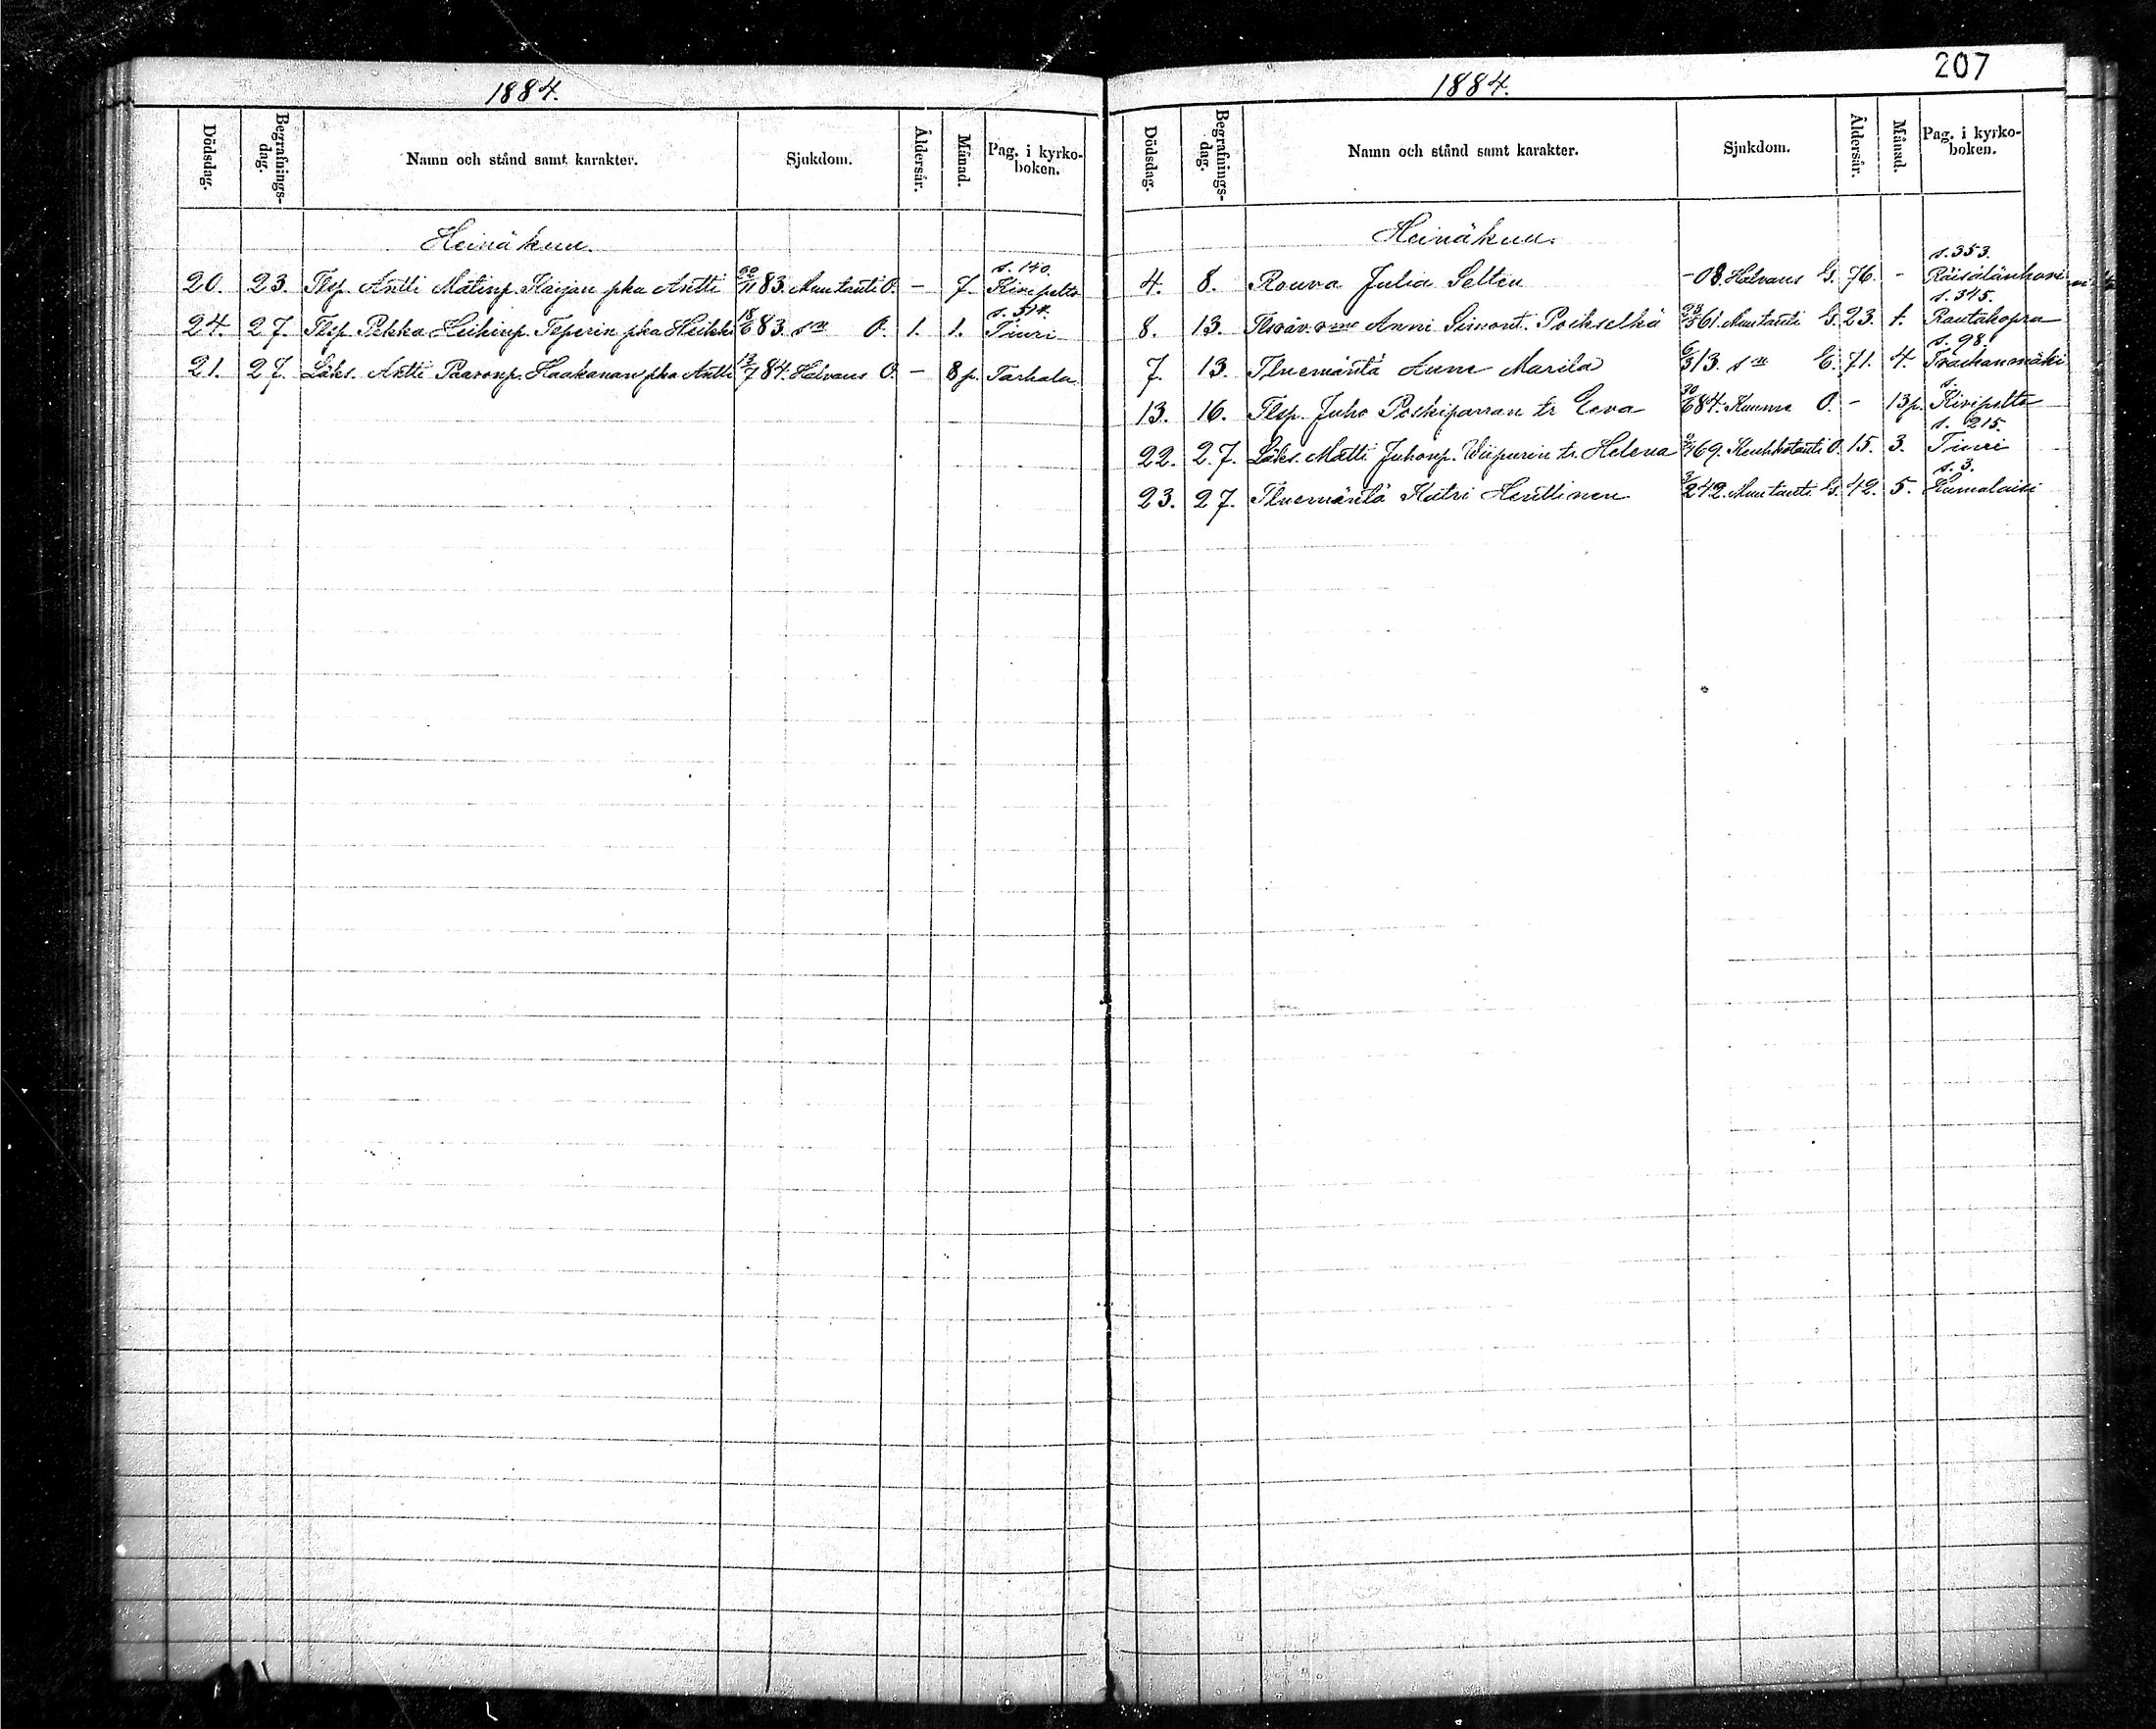 1884.
Dödsdag. Begrafningsdag. Namn och stånd samt karakter. Sjukdom. Åldersår. Månad. Pag. i kyrkoboken.
Heinäkuu.
s. 140.
20. 23. Tlsp. Antti Matinp. pka Antti 83. Muu tauti O. - 7. Kivipelto
24. 27. Tlsp. Pekka Heikinp. Teperin pka Heikki 18/6 83. sm O. 1. 1. Tiuri
21. 27. Läks. Antti Paavonp. Haakanan pka Antti 13/7 84. Halvaus O. - 8 p. Tarhala
207
1884.
Dödsdag. Begrafningsdag. Namn och stånd samt karakter. Sjukdom. Åldersår. Månad. Pag. i kyrkoboken.
Heinäkuu.
s. 353.
4. 8. Rouva Julia Seltin - 08. Halvaus G. 76. -
s. 345.
8. 13. Anni Simont. Poikselkä 61. Muu tauti G. 23. 1. Rautakopra
s. 98.
7. 13. Tluemäntä Anna Marila 6/3 13. sm E. 71. 4.
s.
13. 16. Tlsp. Juho Poskiparran tr Eeva 30/6 84. Kuume O. - 13 p. Kivipelto
s. 215.
22. 27. Läks. Matti Juhonp. Wiipurin tr. Helena 69. Keuhkotauti O. 15. 3. Tiuri
s. 3.
23. 27. Tluemäntä Katri Henttinen 42. Muu tauti G. 42. 5. Humalaisi